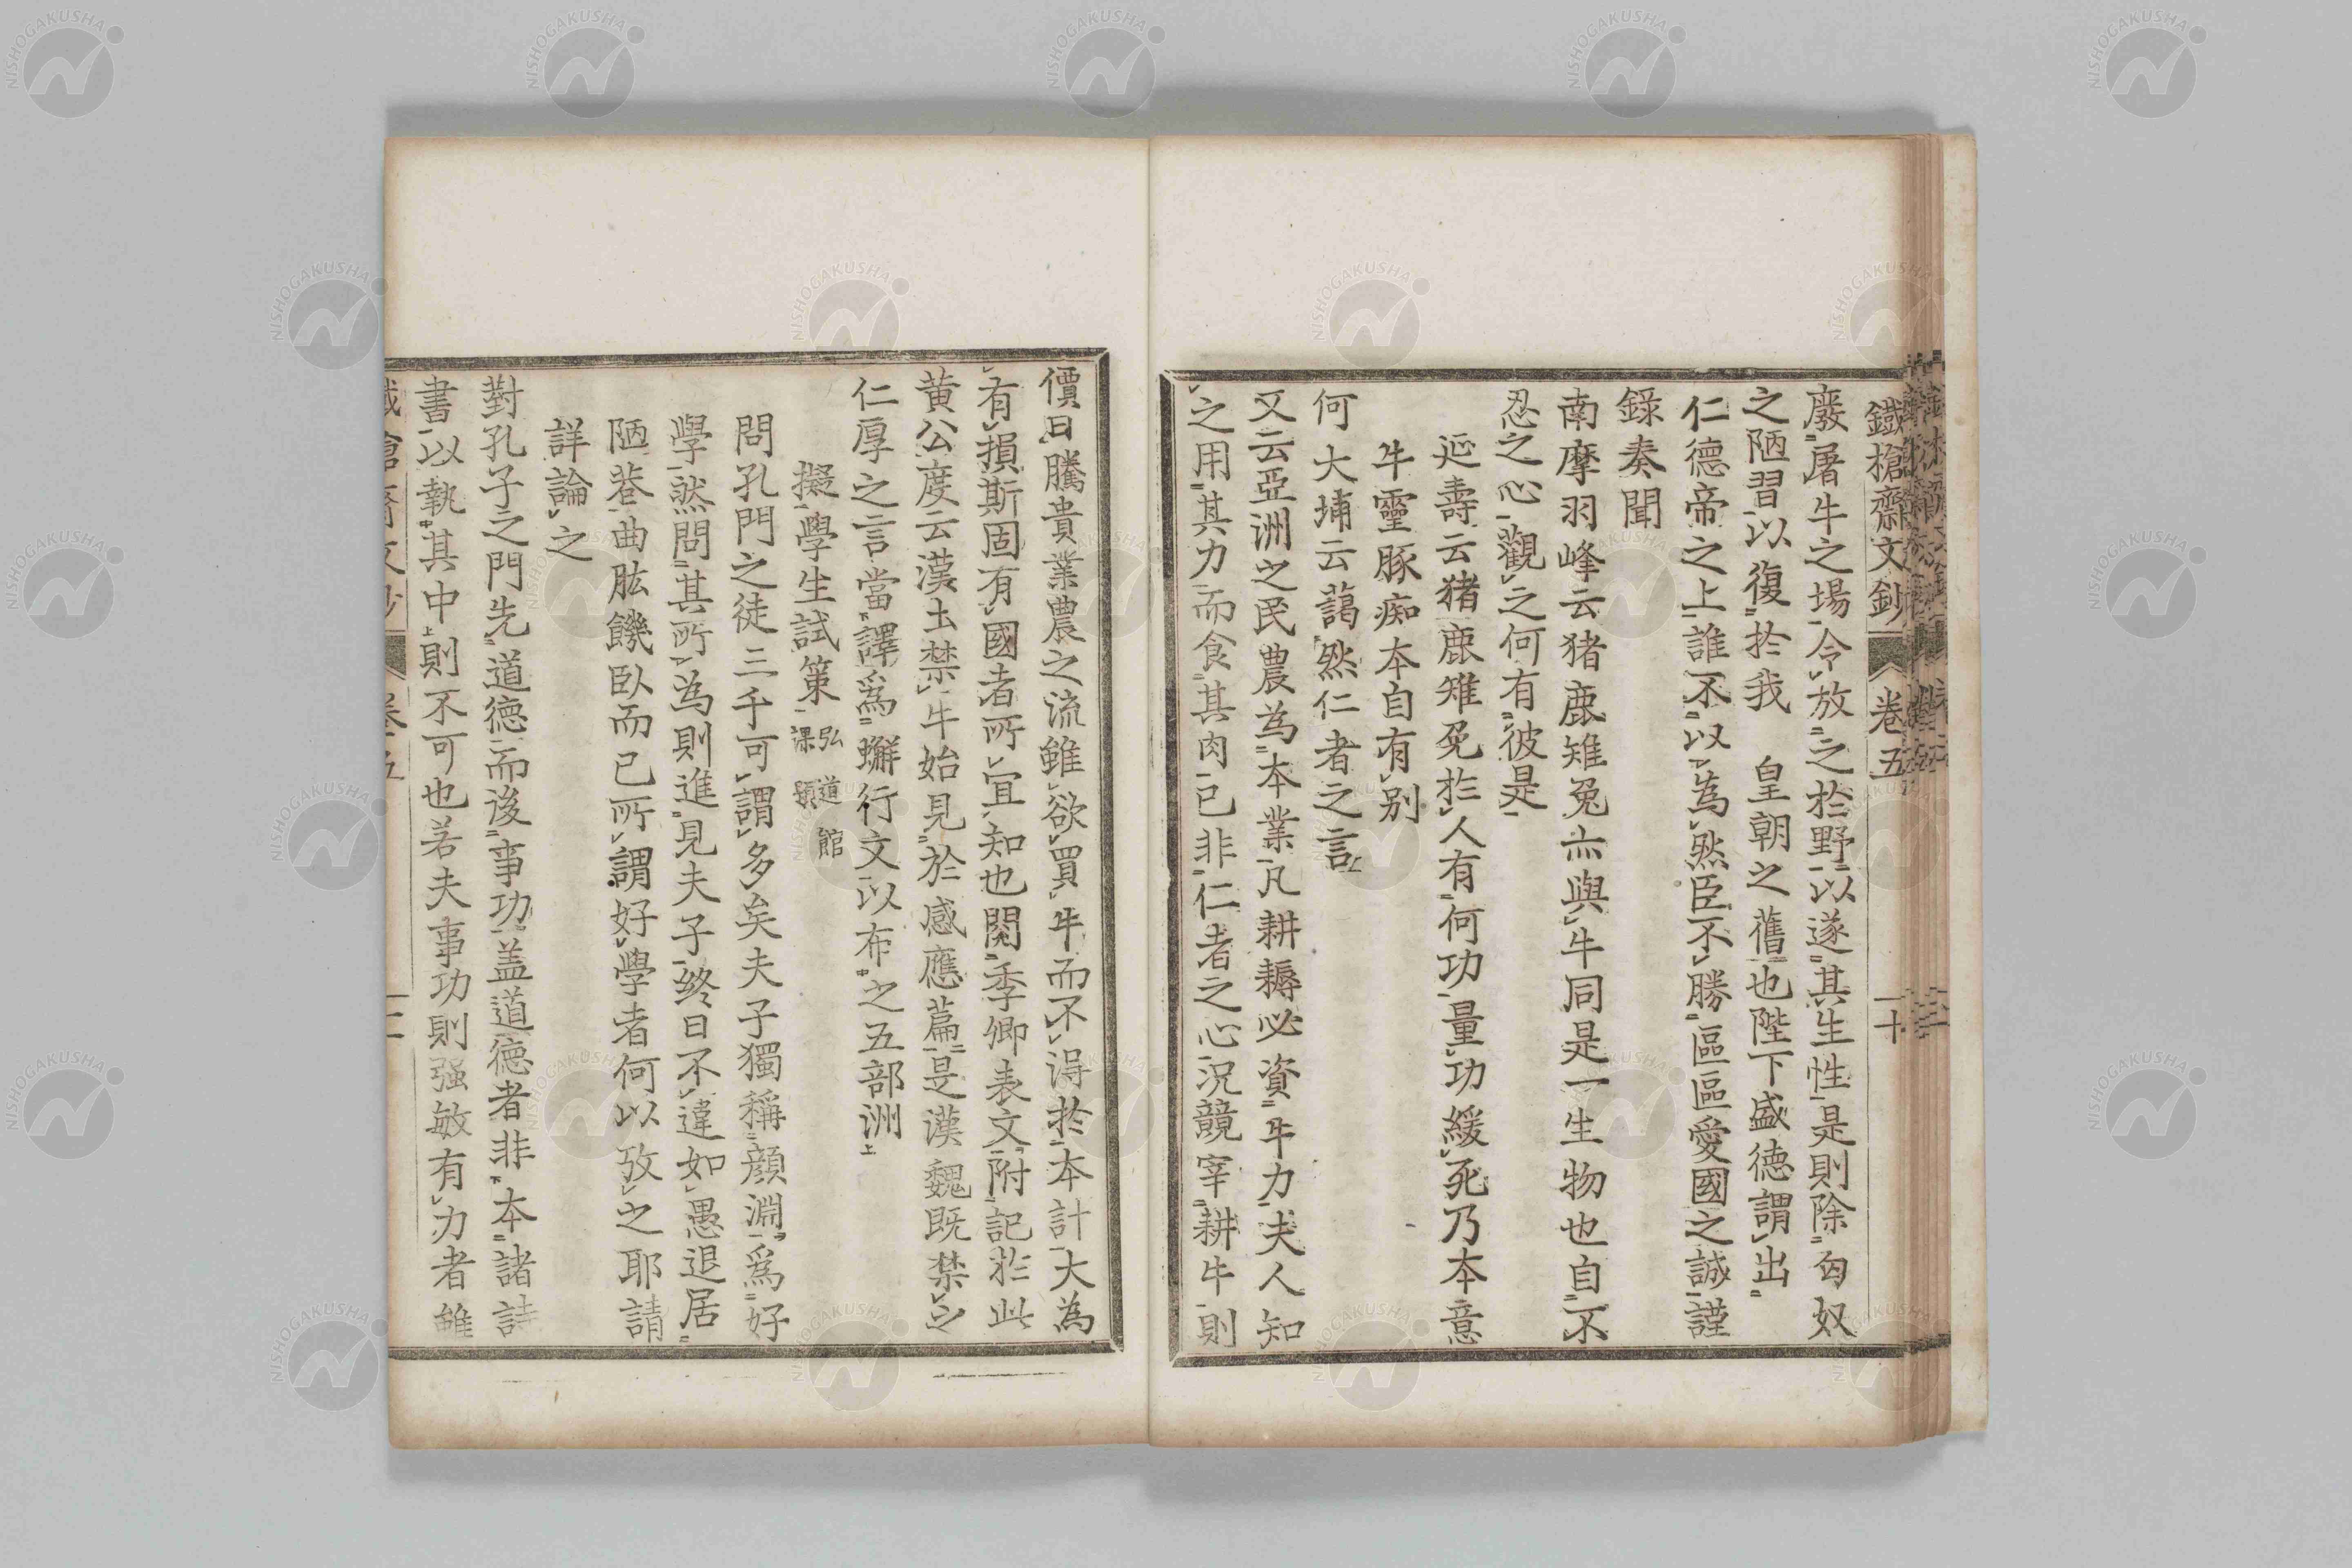 鐵槍齋文鈔 卷五 二十
廢屠牛之場令放之於野以遂其生性是則除匈奴
之陋習以復於我 皇朝之舊也陛下盛德謂出
仁德帝之上誰不以為然臣不勝區區愛國之誠謹
錄奏聞
南摩羽峰云猪鹿雉兔亦與牛同是一生物也自不
忍之心觀之何有彼是
延壽云猪鹿雉兔於人有何功量功緩死乃本意
牛靈豚痴本自有別
何大埔云藹然仁者之言
又云亞洲之民農為本業凡耕耨必資牛力夫人知
之用其力而食其肉已非仁者之心況競宰耕牛則
價日騰貴業農之流雖欲買牛而不得於本計大為
有損斯固有國者所宜知也閱季卿表文附記於此
黃公度云漢土禁牛始見於感應篇是漢魏既禁之
仁厚之言當譯爲駢行文以布之五部洲
擬學生試策 弘道館課題
問孔門之徒三千可謂多矣夫子獨稱顔淵爲好
學然問其所為則進見夫子終日不違如愚退居
陋巷曲肱饑臥而已所謂好學者何以攷之耶請
詳論之
對孔子之門先道德而後事功蓋道德者非本諸詩
書以執其中則不可也若夫事功則强敏有力者雖